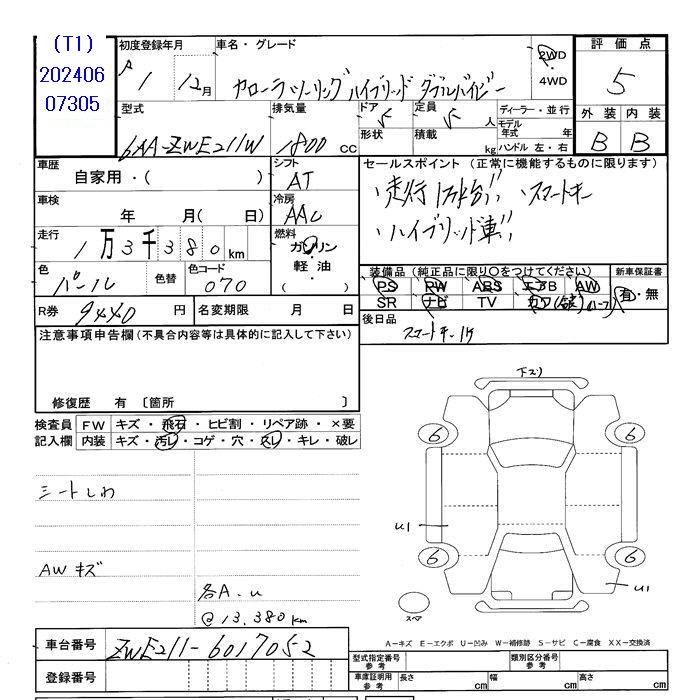 (T1)
202406
07305
初度登録年月
車名・グレード
1 12月
カローラツーリングハイブリッド ダブルバイビー
2WD
4WD
評価点
5
外装 内装
B B
型式
6AA-ZWE211W
排気量
1800 cc
ドア
5
形状
定員
5 人
積載 kg
ディーラー・並行
モデル年式 年
ハンドル 左・右
車歴
自家用・( )
シフト
AT
車検
年 月( 日)
冷房
AAC
走行
1万3千380km
燃料
ガソリン
軽油
( )
色
パール
色替
色コード
070
R券 9440 円
名変期限 月 日
セールスポイント(正常に機能するものに限ります)
、走行1万k台!! 、スマートキー
、ハイブリッド車!!
装備品(純正品に限り○をつけてください)
新車保証書
PS PW ABS エアB AW
SR ナビ TV カワ
有・無
後日品
スマートキー1ケ
注意事項申告欄(不具合内容等は具体的に記入して下さい)
修復歴 有〔箇所 〕
検査員記入欄
FW キズ・飛石・ヒビ割・リペア跡・×要
内装 キズ・汚レ・コゲ・穴・スレ・キレ・破レ
シートしわ
AWキズ
各A.u
@13,380km
下スリ
6
6
U1
6
6
U1
スペア
A-キズ E-エクボ U-凹み W-補修跡 S-サビ C-腐食 XX-交換済
車台番号 ZWE211-6017052
登録番号
型式指定番号 参考
類別区分番号 参考
車庫証明用 参考
長さ cm
幅 cm
高さ cm